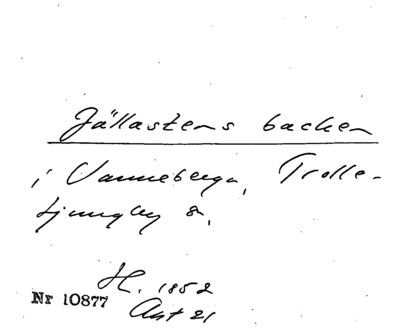 Jällastens backen
i Vanneberga, Trolle-
ljungby s.
H. 1852
Akt 21
Nr 10877